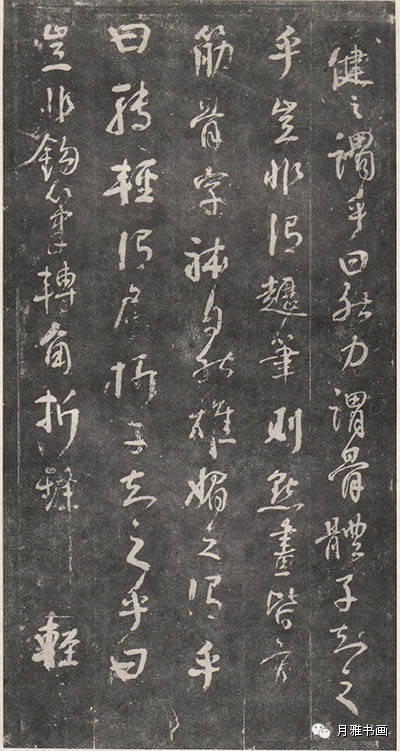 健之謂乎曰然力謂骨體子知之
乎豈非謂趯筆則點畫皆有
筋骨字體自然雄媚之謂乎
曰轉輕謂屈折子知之乎曰
豈非鈎筆轉角折鋒輕
月雅书画